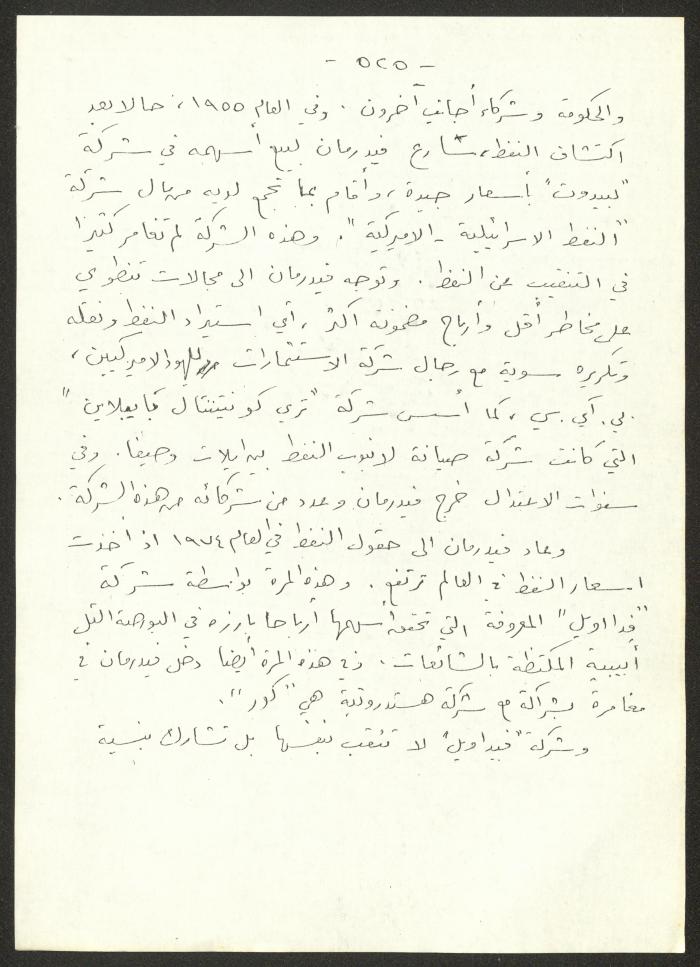 - ٥٢٥ -
والحكومة وشركاء أجانب آخرون. وفي العام ١٩٥٥، حالا بعد
اكتشاف النفط، سارع فيدرمان لبيع أسهمه في شركة
"لبيدوت" بأسعار جيدة، وأقام بما تجمع لديه من مال شركة
"النفط الاسرائيلية - الاميركية". وهذه الشركة لم تغامر كثيرا
في التنقيب عن النفط. وتوجه فيدرمان الى مجالات تنطوي
على مخاطر أقل وأرباح مضمونة اكثر، أي استيراد النفط ونقله
وتكريره سوية مع رجال شركة الاستثمارات لليهود الاميركيين،
بي. آي. سي، كما أسس شركة "تري كونتيننتال بايبلاين"
التي كانت شركة صيانة لانبوب النفط بين ايلات وحيفا. وفي
سنوات الاعتدال خرج فيدرمان وعدد من شركائه من هذه الشركة.
وعاد فيدرمان الى حقول النفط في العام ١٩٧٤ اذ أخذت
اسعار النفط في العالم ترتفع. وهذه المرة بواسطة شركة
"فدا اويل" المعروفة التي تحقق أسهمها أرباحا بارزه في البورصة التل
أبيبية المكتظة بالشائعات. في هذه المرة أيضا دخل فيدرمان في
مغامرة بشراكة مع شركة هستدروتية هي "كور".
وشركة "فيدا اويل" لا تنقب بنفسها بل تشارك بنسبة